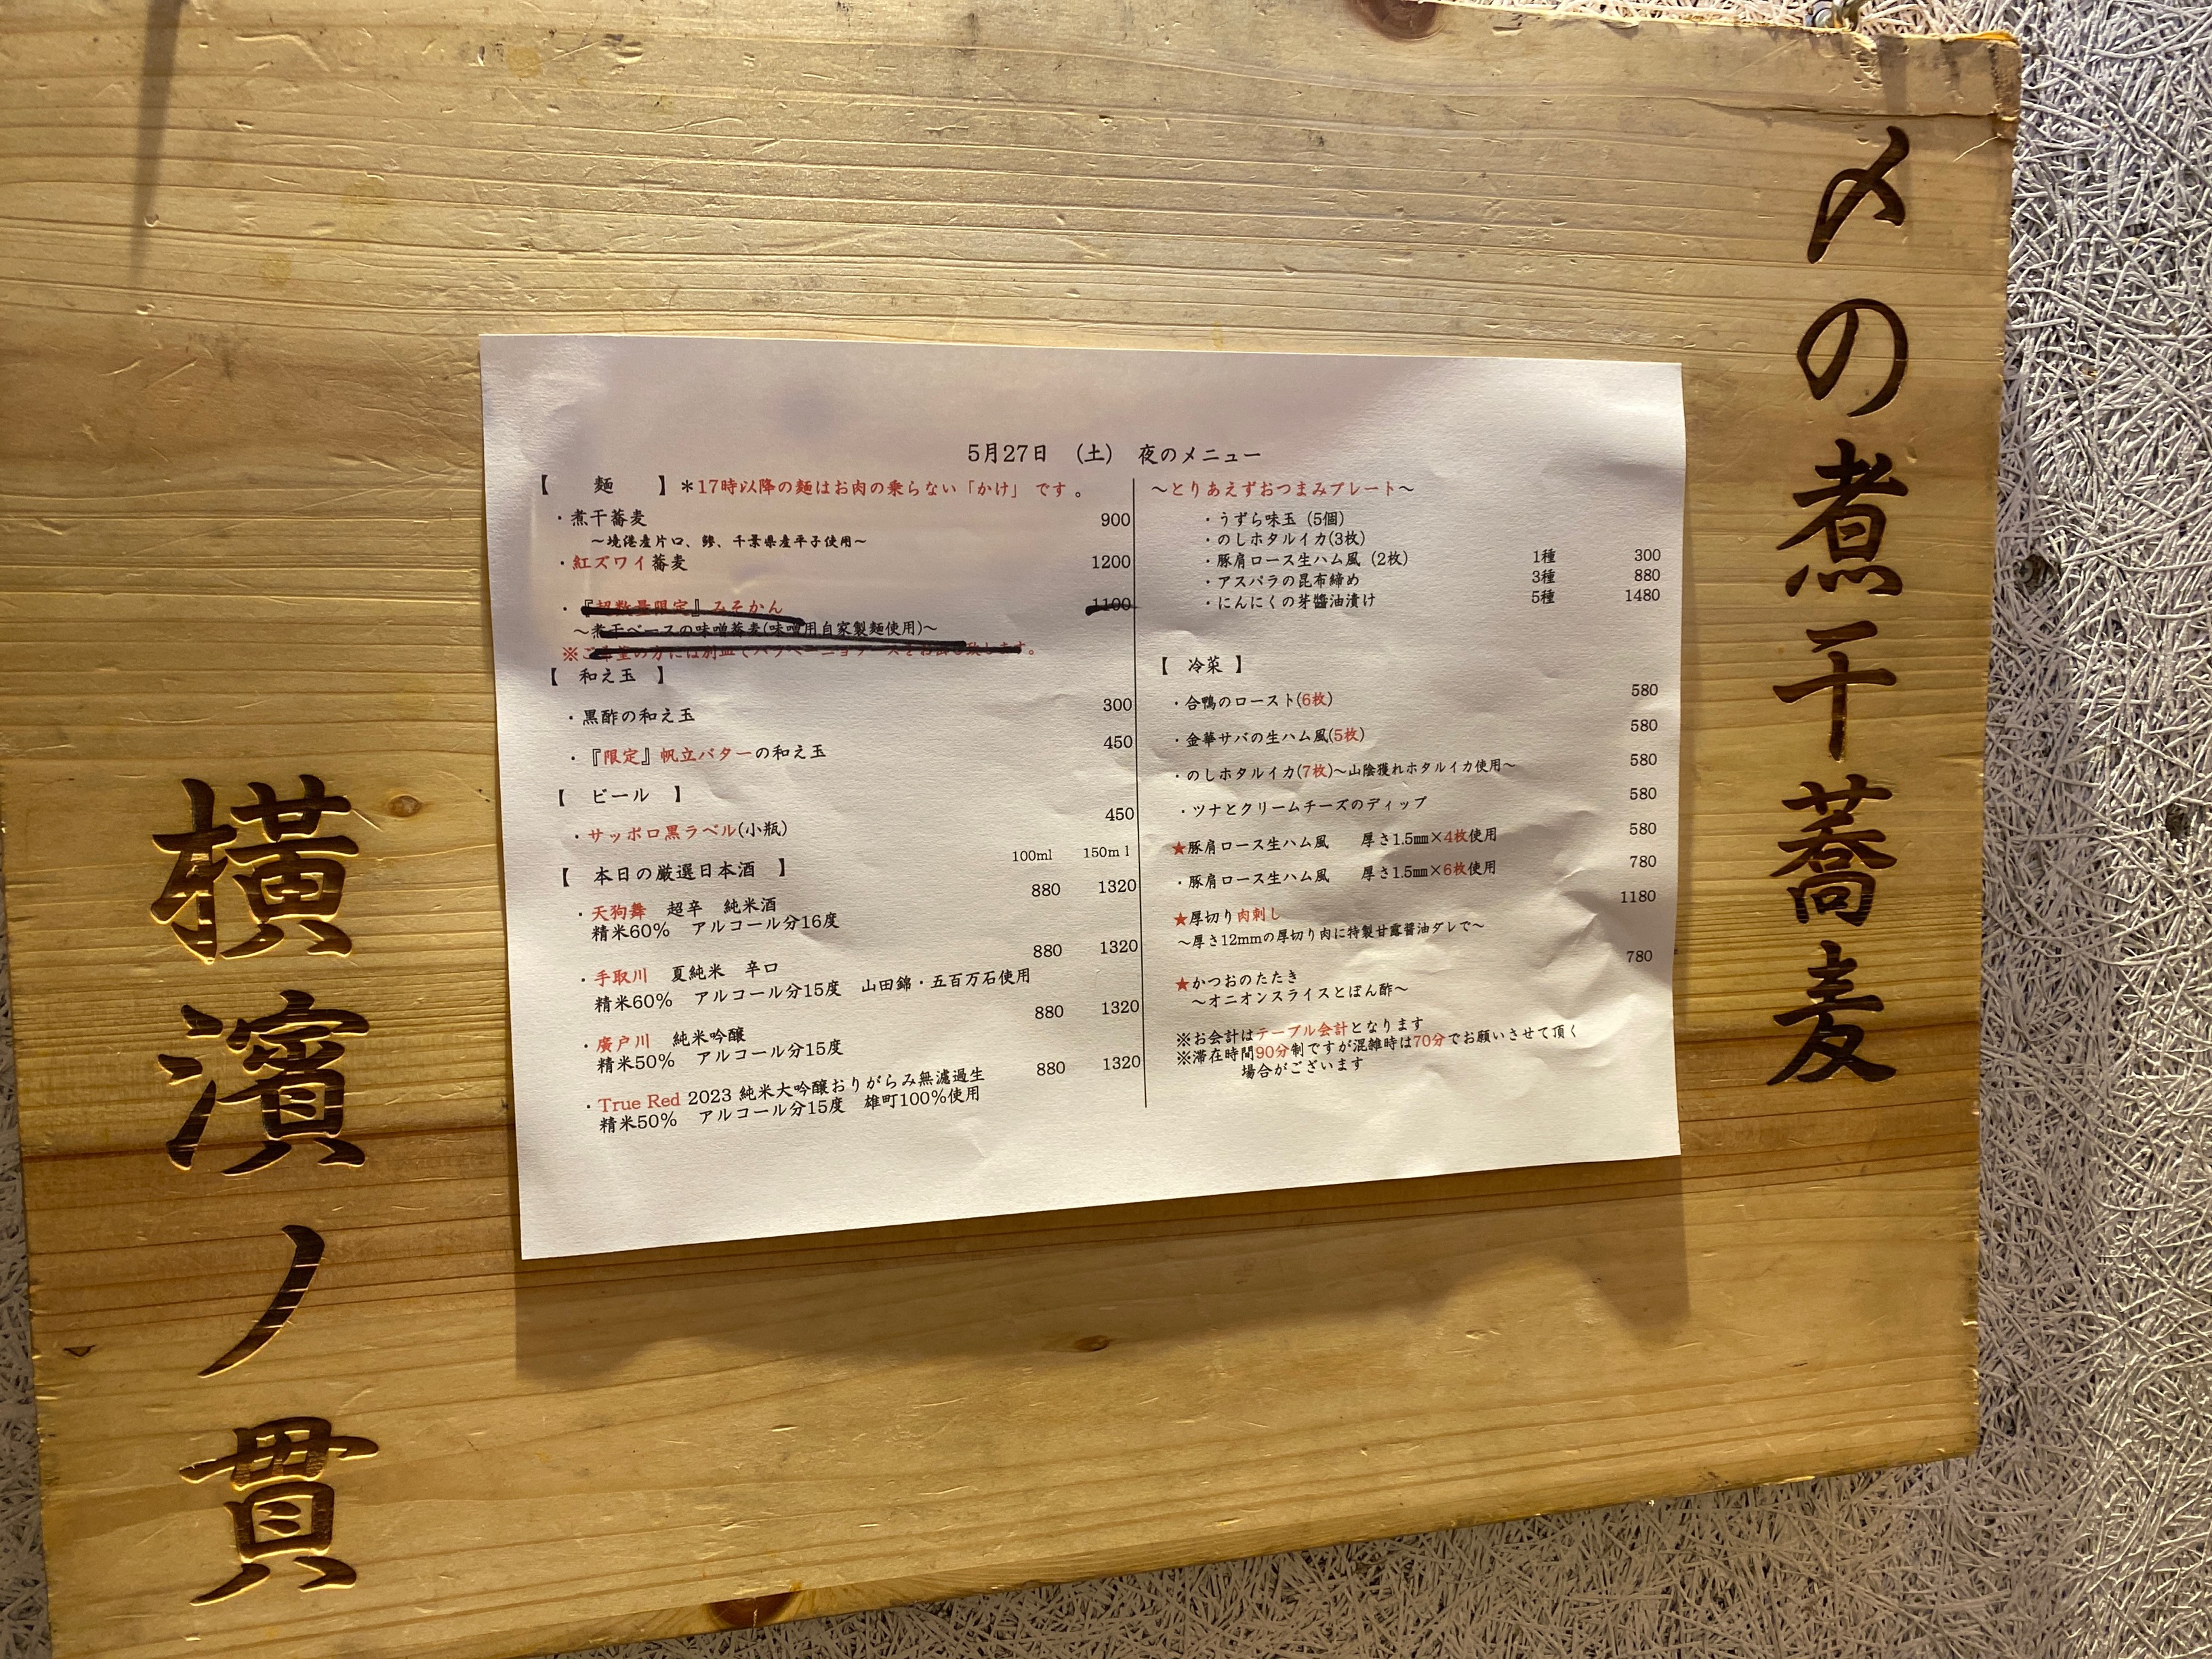 〆の煮干蕎麦
5月27日 （土） 夜のメニュー
【 麺 】＊17時以降の麺はお肉の乗らない「かけ」です。
・煮干蕎麦 900
～境港産片口、鯵、千葉県産平子使用～
・紅ズワイ蕎麦 1200
・『超数量限定』みそかん 1100
～煮干ベースの味噌蕎麦(味噌用自家製麺使用)～
※ご希望の方には別皿で
致します。
【 和え玉 】
・黒酢の和え玉 300
・『限定』帆立バターの和え玉 450
【 ビール 】
・サッポロ黒ラベル(小瓶) 450
【 本日の厳選日本酒 】 100ml 150ml
・天狗舞 超辛 純米酒 880 1320
精米60% アルコール分16度
・手取川 夏純米 辛口 880 1320
精米60% アルコール分15度 山田錦・五百万石使用
・廣戸川 純米吟醸 880 1320
精米50% アルコール分15度
・True Red 2023 純米大吟醸おりがらみ無濾過生 880 1320
精米50% アルコール分15度 雄町100%使用
～とりあえずおつまみプレート～
・うずら味玉（5個）
・のしホタルイカ(3枚)
・豚肩ロース生ハム風（2枚） 1種 300
・アスパラの昆布締め 3種 880
・にんにくの芽醬油漬け 5種 1480
【 冷菜 】
・合鴨のロースト(6枚) 580
・金華サバの生ハム風(5枚) 580
・のしホタルイカ(7枚)～山陰獲れホタルイカ使用～ 580
・ツナとクリームチーズのディップ 580
★豚肩ロース生ハム風 厚さ1.5㎜×4枚使用 580
・豚肩ロース生ハム風 厚さ1.5㎜×6枚使用 780
★厚切り肉刺し 1180
～厚さ12mmの厚切り肉に特製甘露醤油ダレで～
★かつおのたたき 780
～オニオンスライスとぽん酢～
※お会計はテーブル会計となります
※滞在時間90分制ですが混雑時は70分でお願いさせて頂く
場合がございます
横濱ノ貫